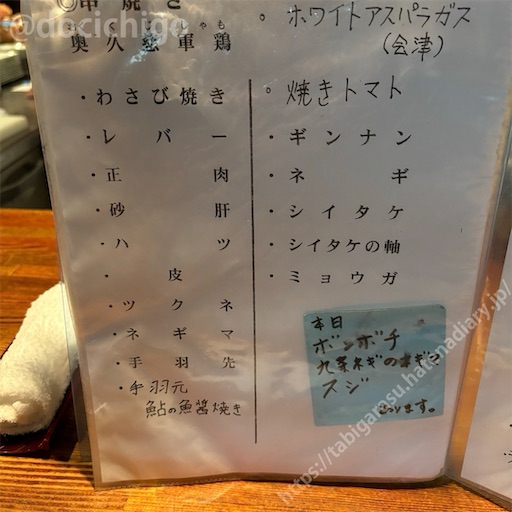 ◎串焼き
@docichigo
奥久慈軍鶏
しゃも
・わさび焼き
・レバー
・正肉
・砂肝
・ハツ
・皮
・ツクネ
・ネギマ
・手羽先
・手羽元
鮎の魚醤焼き
。ホワイトアスパラガス
(会津)
。焼きトマト
・ギンナン
・ネギ
・シイタケ
・シイタケの軸
・ミョウガ
本日
ボンボチ
九条ネギの
スジ
あります。
https://tabigarasu.hatenadiary.jp/